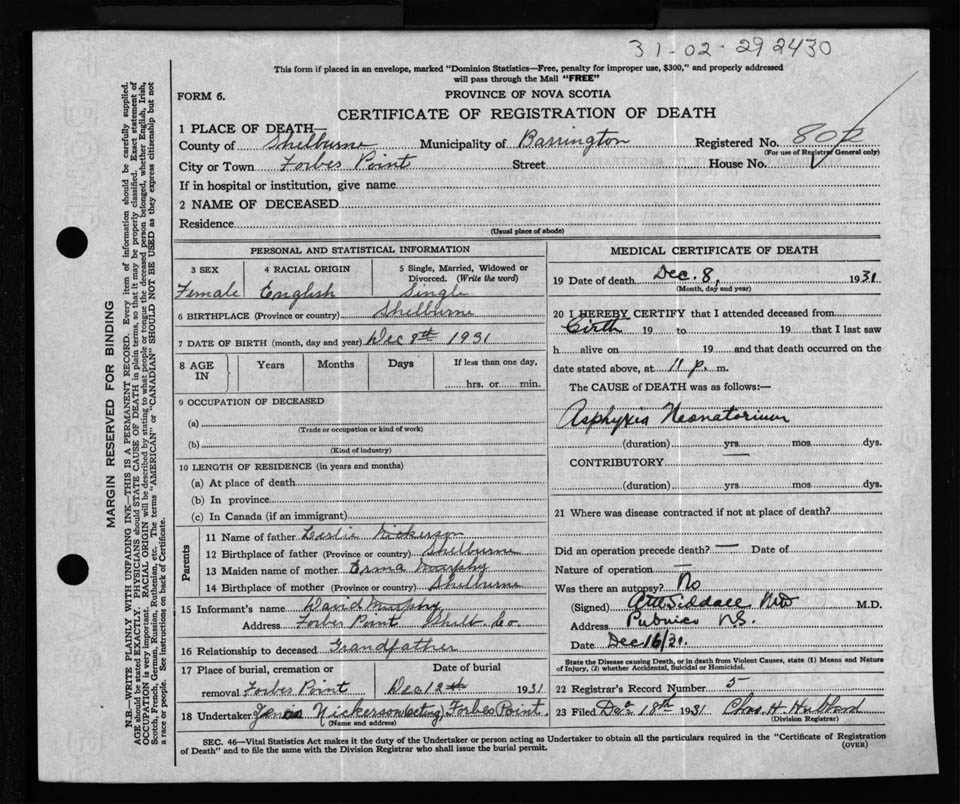 31-02-292430
This form if placed in an envelope, marked "Dominion Statistics—Free, penalty for improper use, $300," and properly addressed
will pass through the Mail "FREE"
FORM 6.
PROVINCE OF NOVA SCOTIA
CERTIFICATE OF REGISTRATION OF DEATH
1 PLACE OF DEATH—
County of Shelburne Municipality of Barrington Registered No.
(For use of Registrar General only)
City or Town Forbes Point Street House No.
If in hospital or institution, give name
2 NAME OF DECEASED
Residence
(Usual place of abode)
PERSONAL AND STATISTICAL INFORMATION
3 SEX 4 RACIAL ORIGIN 5 Single, Married, Widowed or
Divorced. (Write the word)
Female English Single
6 BIRTHPLACE (Province or country) Shelburne
7 DATE OF BIRTH (month, day and year) Dec 8th 1931
8 AGE IN Years Months Days If less than one day,
hrs. or min.
9 OCCUPATION OF DECEASED
(a)
(Trade or occupation or kind of work)
(b)
(Kind of industry)
10 LENGTH OF RESIDENCE (in years and months)
(a) At place of death
(b) In province
(c) In Canada (if an immigrant)
Parents
11 Name of father Leslie Nickerson
12 Birthplace of father (Province or country) Shelburne
13 Maiden name of mother Erma Murphy
14 Birthplace of mother (Province or country) Shelburne
15 Informant's name David Murphy
Address Forbes Point Shelb Co.
16 Relationship to deceased Grandfather
17 Place of burial, cremation or Date of burial
removal Forbes Point Dec 12th 1931
18 Undertaker Nickerson (acting) Forbes Point.
(Name and address)
MEDICAL CERTIFICATE OF DEATH
19 Date of death Dec. 8, 1931
(Month, day and year)
20 I HEREBY CERTIFY that I attended deceased from
Birth 19 to 19 that I last saw
h alive on 19 and that death occurred on the
date stated above, at 11 p. m.
The CAUSE of DEATH was as follows:—
Asphyxia Neonatorum
(duration) yrs. mos. dys.
CONTRIBUTORY
(duration) yrs. mos. dys.
21 Where was disease contracted if not at place of death?
Did an operation precede death? — Date of
Nature of operation —
Was there an autopsy? No
(Signed) Siddall MD M.D.
Address Pubnico N.S.
Date Dec 16/31.
State the Disease causing Death, or in death from Violent Causes, state (1) Means and Nature
of Injury, (2) whether Accidental, Suicidal or Homicidal.
22 Registrar's Record Number 5
23 Filed Dec 18th 1931 Chas. H. Hubbard
(Division Registrar)
SEC. 46—Vital Statistics Act makes it the duty of the Undertaker or person acting as Undertaker to obtain all the particulars required in the "Certificate of Registration
of Death" and to file the same with the Division Registrar who shall issue the burial permit.
(OVER)
MARGIN RESERVED FOR BINDING
N.B.—WRITE PLAINLY WITH UNFADING INK—THIS IS A PERMANENT RECORD. Every item of information should be carefully supplied.
AGE should be stated EXACTLY. PHYSICIANS should STATE CAUSE OF DEATH in plain terms, so that it may be properly classified. Exact statement of
OCCUPATION is very important. RACIAL ORIGIN will be described by stating to what people or tongue the deceased person belonged, whether English, Irish,
Scotch, French, German, Russian, Ruthenian, etc. The terms "AMERICAN" or "CANADIAN" SHOULD NOT BE USED as they express citizenship but not
a race or people. See instructions on back of Certificate.